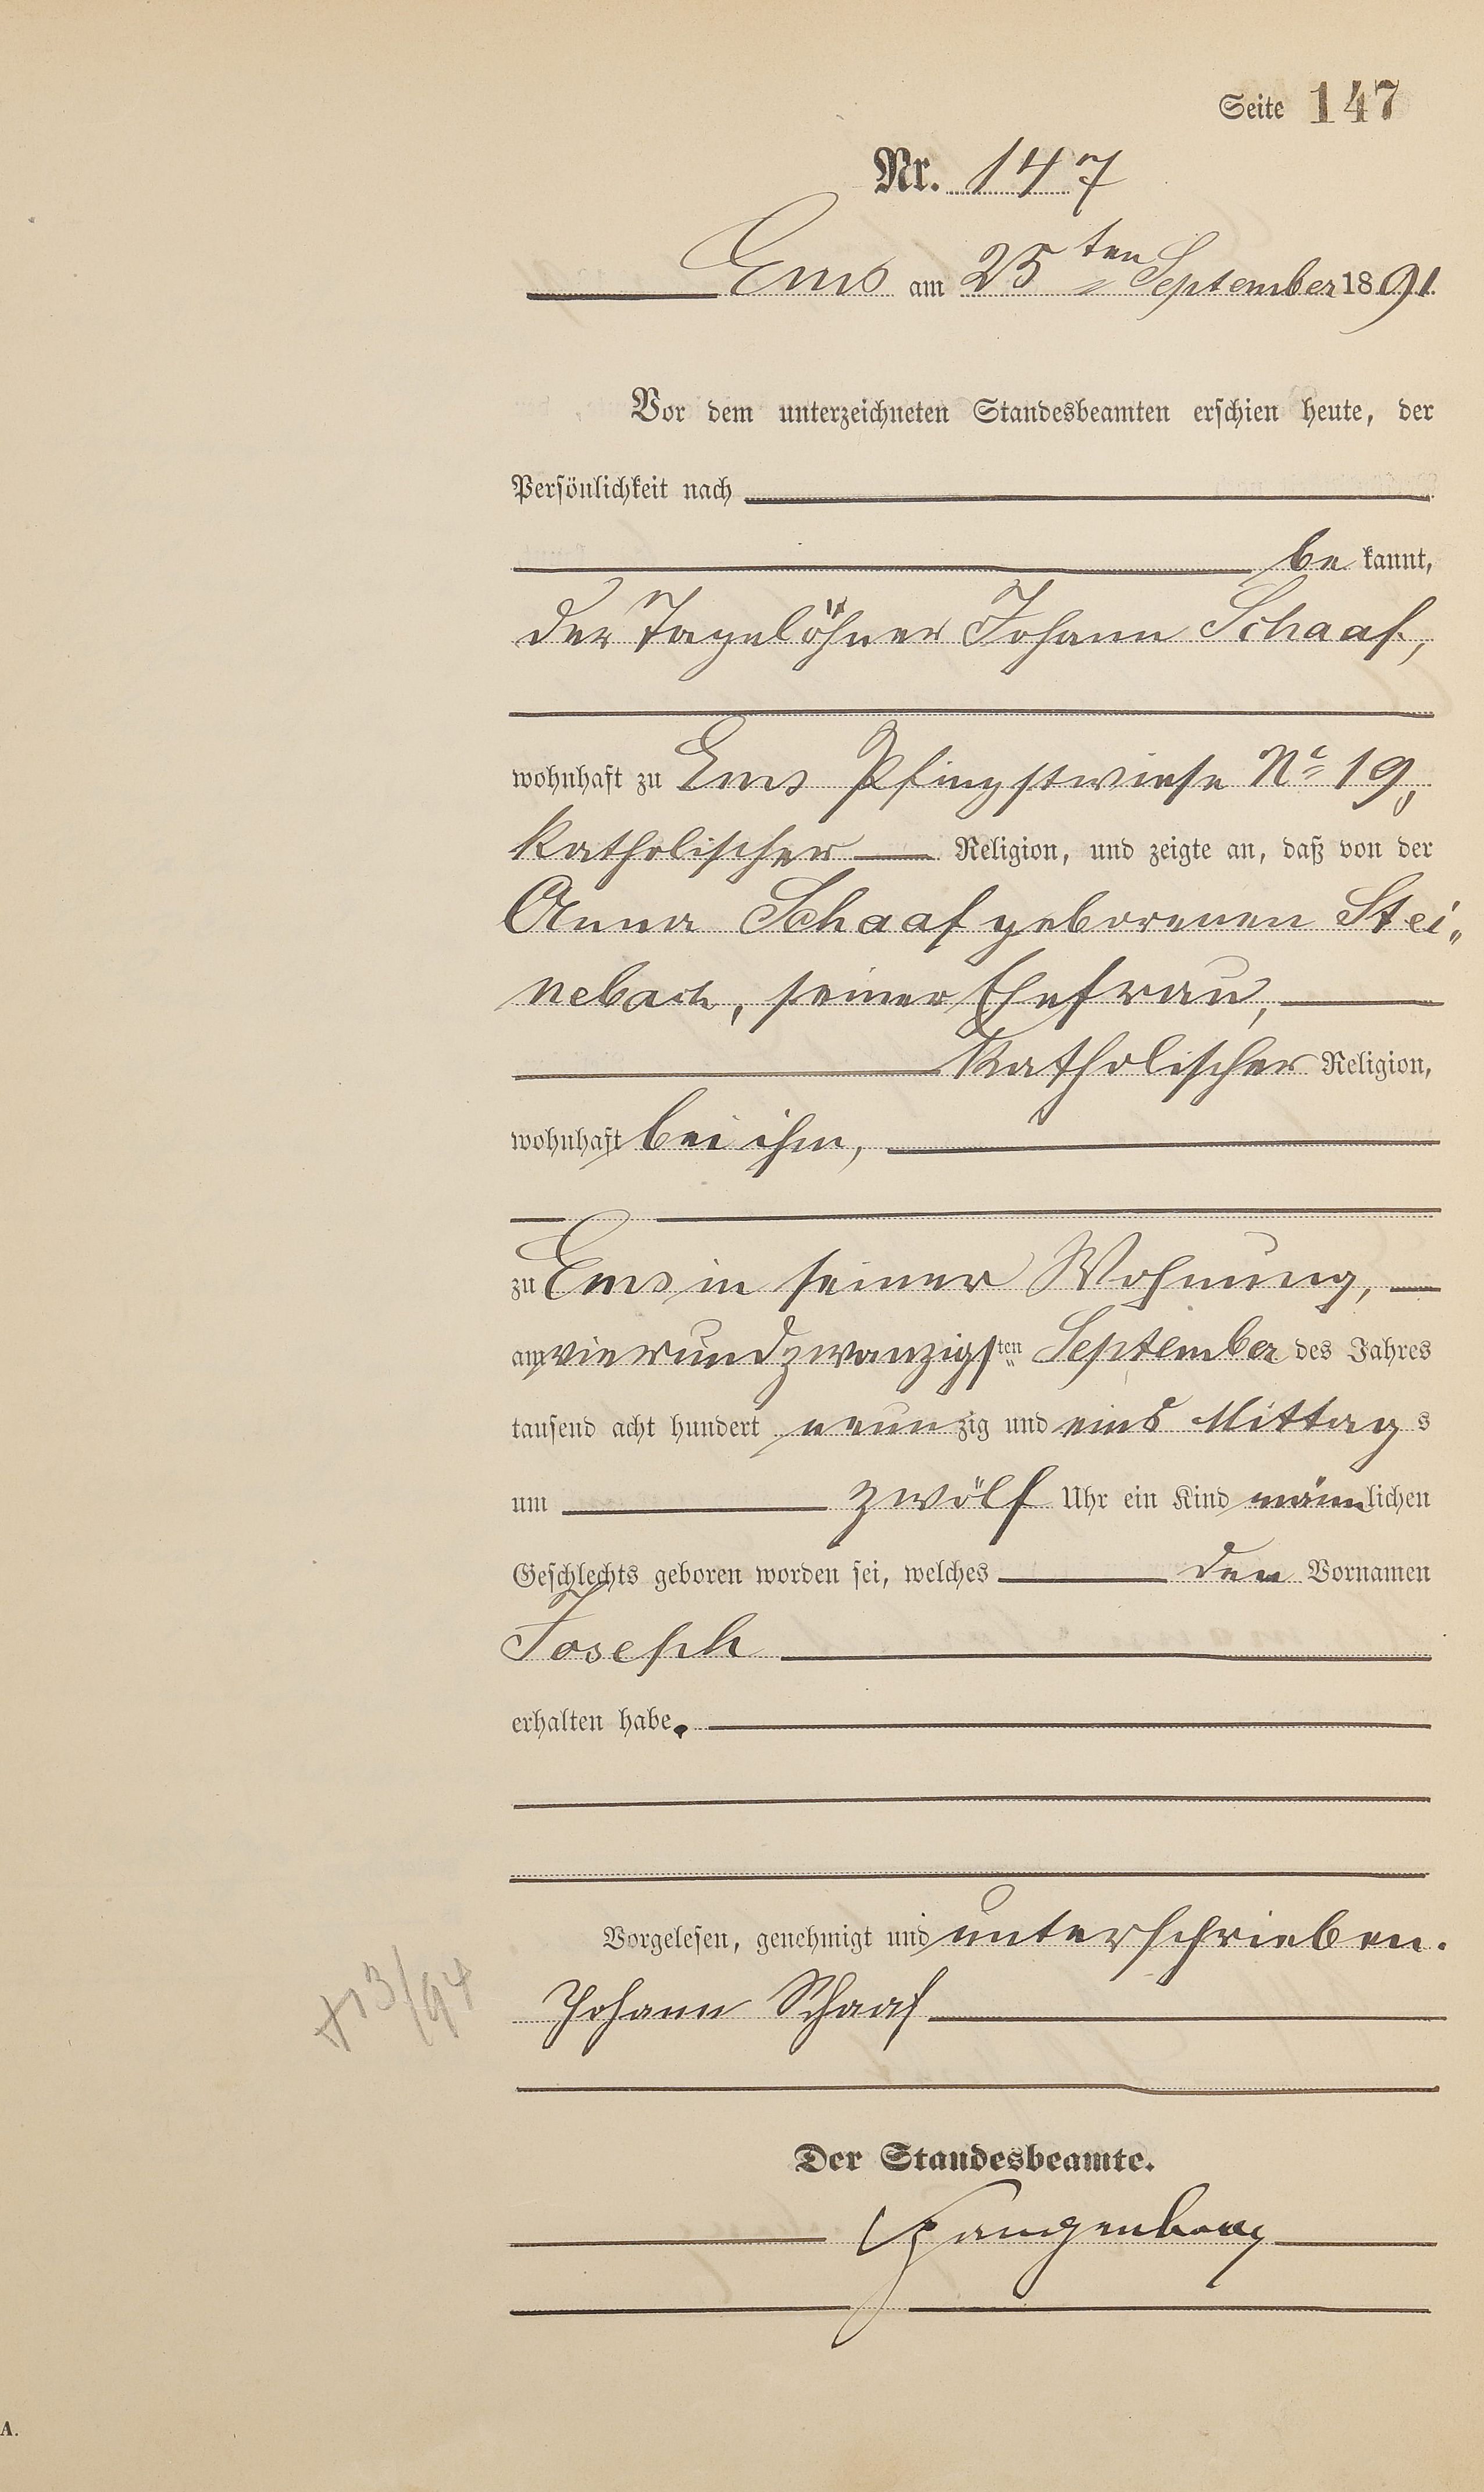 Seite 147
Nr. 147
Ems am 25ten September 1891
Vor dem unterzeichneten Standesbeamten erschien heute, der
Persönlichkeit nach
be kannt,
der Tagelöhner Johann Schaaf,
wohnhaft zu Ems Pfingstwiese No 19,
katholischer Religion, und zeigte an, daß von der
Anna Schaaf geborenen Stei„
nebach, seiner Ehefrau,
katholischer Religion,
wohnhaft bei ihm,
zu Ems in seiner Wohnung,
am vierundzwanzigsten September des Jahres
tausend acht hundert neunzig und eins Mittags
um zwölf Uhr ein Kind männlichen
Geschlechts geboren worden sei, welches den Vornamen
Joseph
erhalten habe.
Vorgelesen, genehmigt und unterschrieben.
Johann Schaaf
Der Standesbeamte.
A.